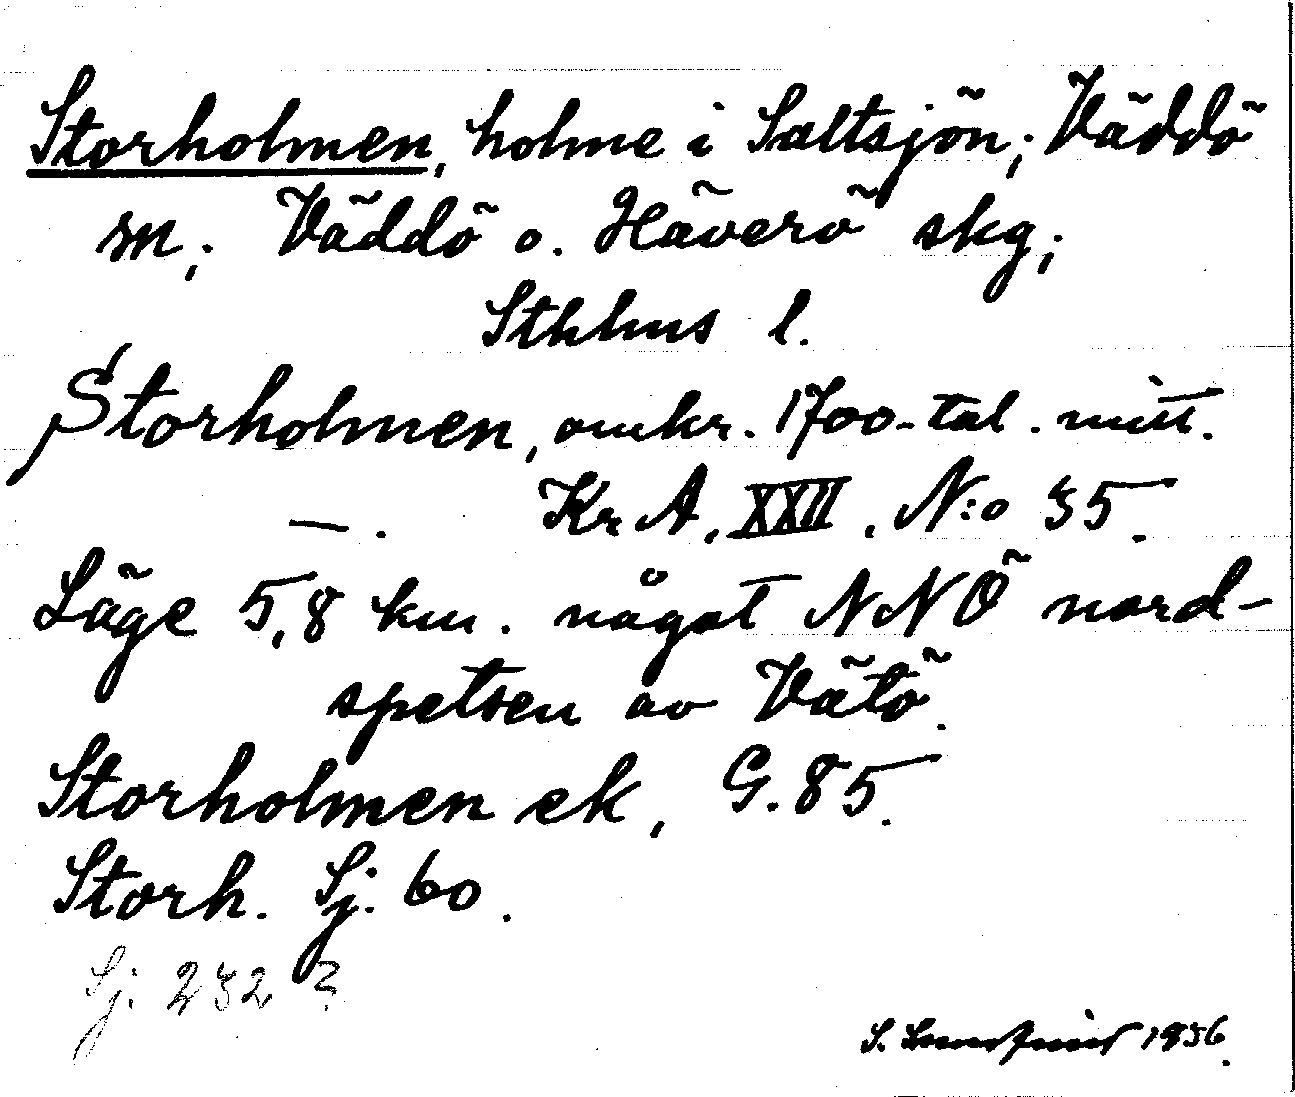 Storholmen, holme i Saltsjön; Väddö
sn; Väddö o. Häverö skg;
Sthlms l.
Storholmen, omkr. 1700-tal. mitt.
—. Kr A, XXII, N:o 35.
Läge 5,8 km. något NNÖ nord-
spetsen av Vätö.
Storholmen ek, G. 85.
Storh. Sj. 60.
Sj. 232 ?
S. 1936.